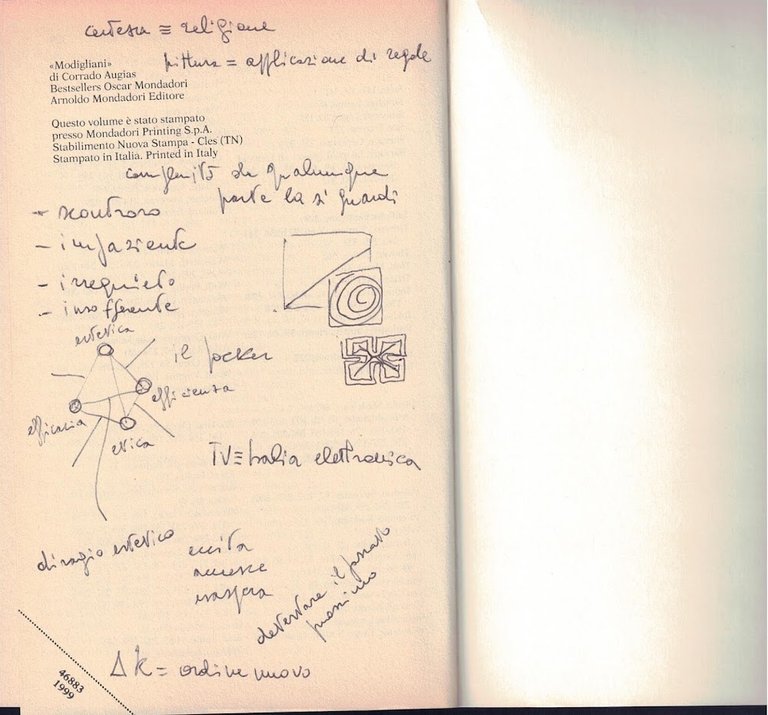 certezza ≡ religione
pittura = applicazione di regole
«Modigliani»
di Corrado Augias
Bestsellers Oscar Mondadori
Arnoldo Mondadori Editore
Questo volume è stato stampato
presso Mondadori Printing S.p.A.
Stabilimento Nuova Stampa - Cles (TN)
Stampato in Italia. Printed in Italy
complessità da qualunque
parte la si guardi
- scontroso
- impaziente
- irrequieto
- insofferente
estetica
il poker
efficienza
efficacia
etica
TV ≡ balia elettronica
disagio estetico
eccita
accresce
esaspera
detestare il passato
prossimo
Δk = ordine nuovo
46883
1999